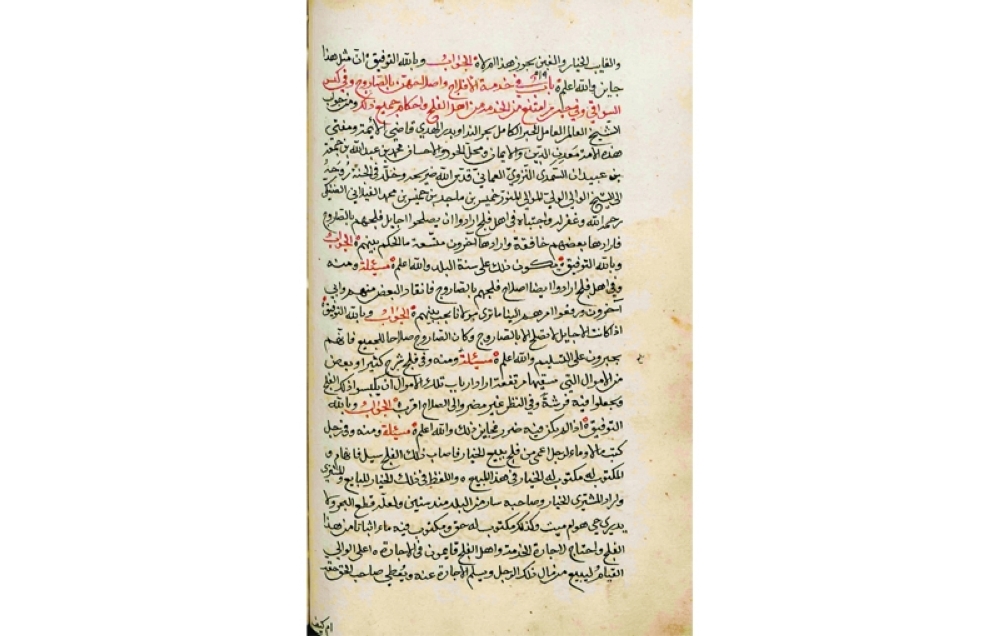 والغايب الخيار والغبن يجوز هذا ام لا الجواب وبالله التوفيق ان مثل هذا
جايز والله اعلم باب في خدمة الافلاج واصلاحهن بالصاروج وفي كبس
السواقي وفي من امتنع عن الخدمة من اهل الفلج واحكام جميع ذلك ومن جواب
الشيخ العالم العامل الحبر الكامل بحر الندا وبدر الهدى قاضي الائمة ومفتي
هذه الامة معدن الدين والايمان ومحل الجود والاحسان محمد بن عبدالله بن جمعة
بن عبيدان السمدي النزوي العماني قدس الله ضريحه وخلد في الجنة روحه
الى الشيخ الوالي الولي الموالي خميس بن ماجد بن خميس بن محمد
رحمه الله وغفر له واجتباه في اهل فلج ارادوا ان يصلحوا اجايل فلجهم بالصاروج
فارادها بعضهم خافقة وارادها آخرون متسعة ما الحكم بينهم الجواب
وبالله التوفيق يكون ذلك على سنة البلد والله اعلم مسئلة ومنه
وفي اهل فلج ارادوا ايضا اصلاح فلجهم بالصاروج فانقاد البعض منهم وابى
آخرون ورفعوا امرهم الينا ما ترى مولانا يجب بينهم الجواب وبالله التوفيق
اذا كانت الاجايل لا تصلح الا بالصاروج وكان الصاروج صلاحا للجميع فانهم
يجبرون على التسليم والله اعلم مسئلة ومنه وفي فلج شرج كثيرا وبعض
من الاموال التي سقيها مرتفعة اراد ارباب تلك الاموال ان يكبسوا ذلك الفلج
ويجعلوا فيه فرشة وفي النظر غير مضر والى الصلاح اقرب الجواب وبالله
التوفيق اذا لم يكن فيه ضرر فجايز ذلك والله اعلم مسئلة ومنه وفي رجل
كتب مالا وماء لرجل اعمى من فلج ببيع الخيار فاصاب ذلك الفلج سيل فانهام و
المكتوب له مكتوب له الخيار في هذا البيع واللفظ في ذلك الخيار للبايع والمشتري
واراد المشتري الخيار وصاحبه سار من البلد منذ سنين ولعله قطع البحر ولا
يدري حي هو ام ميت وكذلك مكتوب له حق ومكتوب فيه ماء اثباتا من هذا
الفلج واحتاج لاجارة الخدمة واهل الفلج قايمون في الاجارة اعلى الوالي
القيام ليبيع من مال ذلك الرجل ويسلم الاجارة عنه ويعطي صاحب الحق حقه
ام كيف